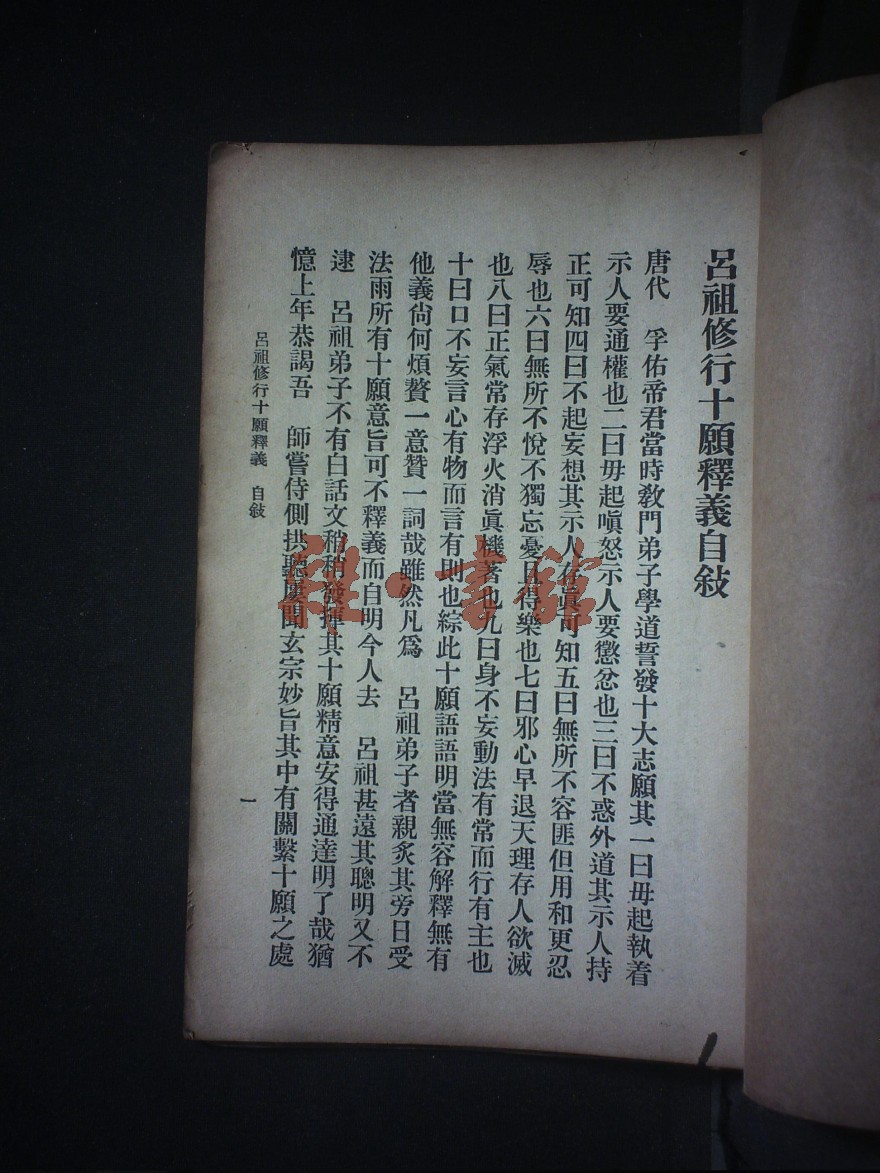 呂祖修行十願釋義自敍
唐代　孚佑帝君當時敎門弟子學道誓發十大志願其一曰毋起執着
示人要通權也二曰毋起嗔怒示人要懲忿也三曰不惑外道其示人持
正可知四曰不起妄想其示人存眞可知五曰無所不容匪但用和更忍
辱也六曰無所不悅不獨忘憂且得樂也七曰邪心早退天理存人欲滅
也八曰正氣常存浮火消眞機著也九曰身不妄動法有常而行有主也
十曰口不妄言心有物而言有則也綜此十願語語明當無容解釋無有
他義尙何煩贅一意贊一詞哉雖然凡爲　呂祖弟子者親炙其旁日受
法雨所有十願意旨可不釋義而自明今人去　呂祖甚遠其聰明又不
逮　呂祖弟子不有白話文稍稍發揮其十願精意安得通達明了哉猶
憶上年恭謁吾　師嘗侍側拱聽屢聞玄宗妙旨其中有關繫十願之處
呂祖修行十願釋義　自敍
一